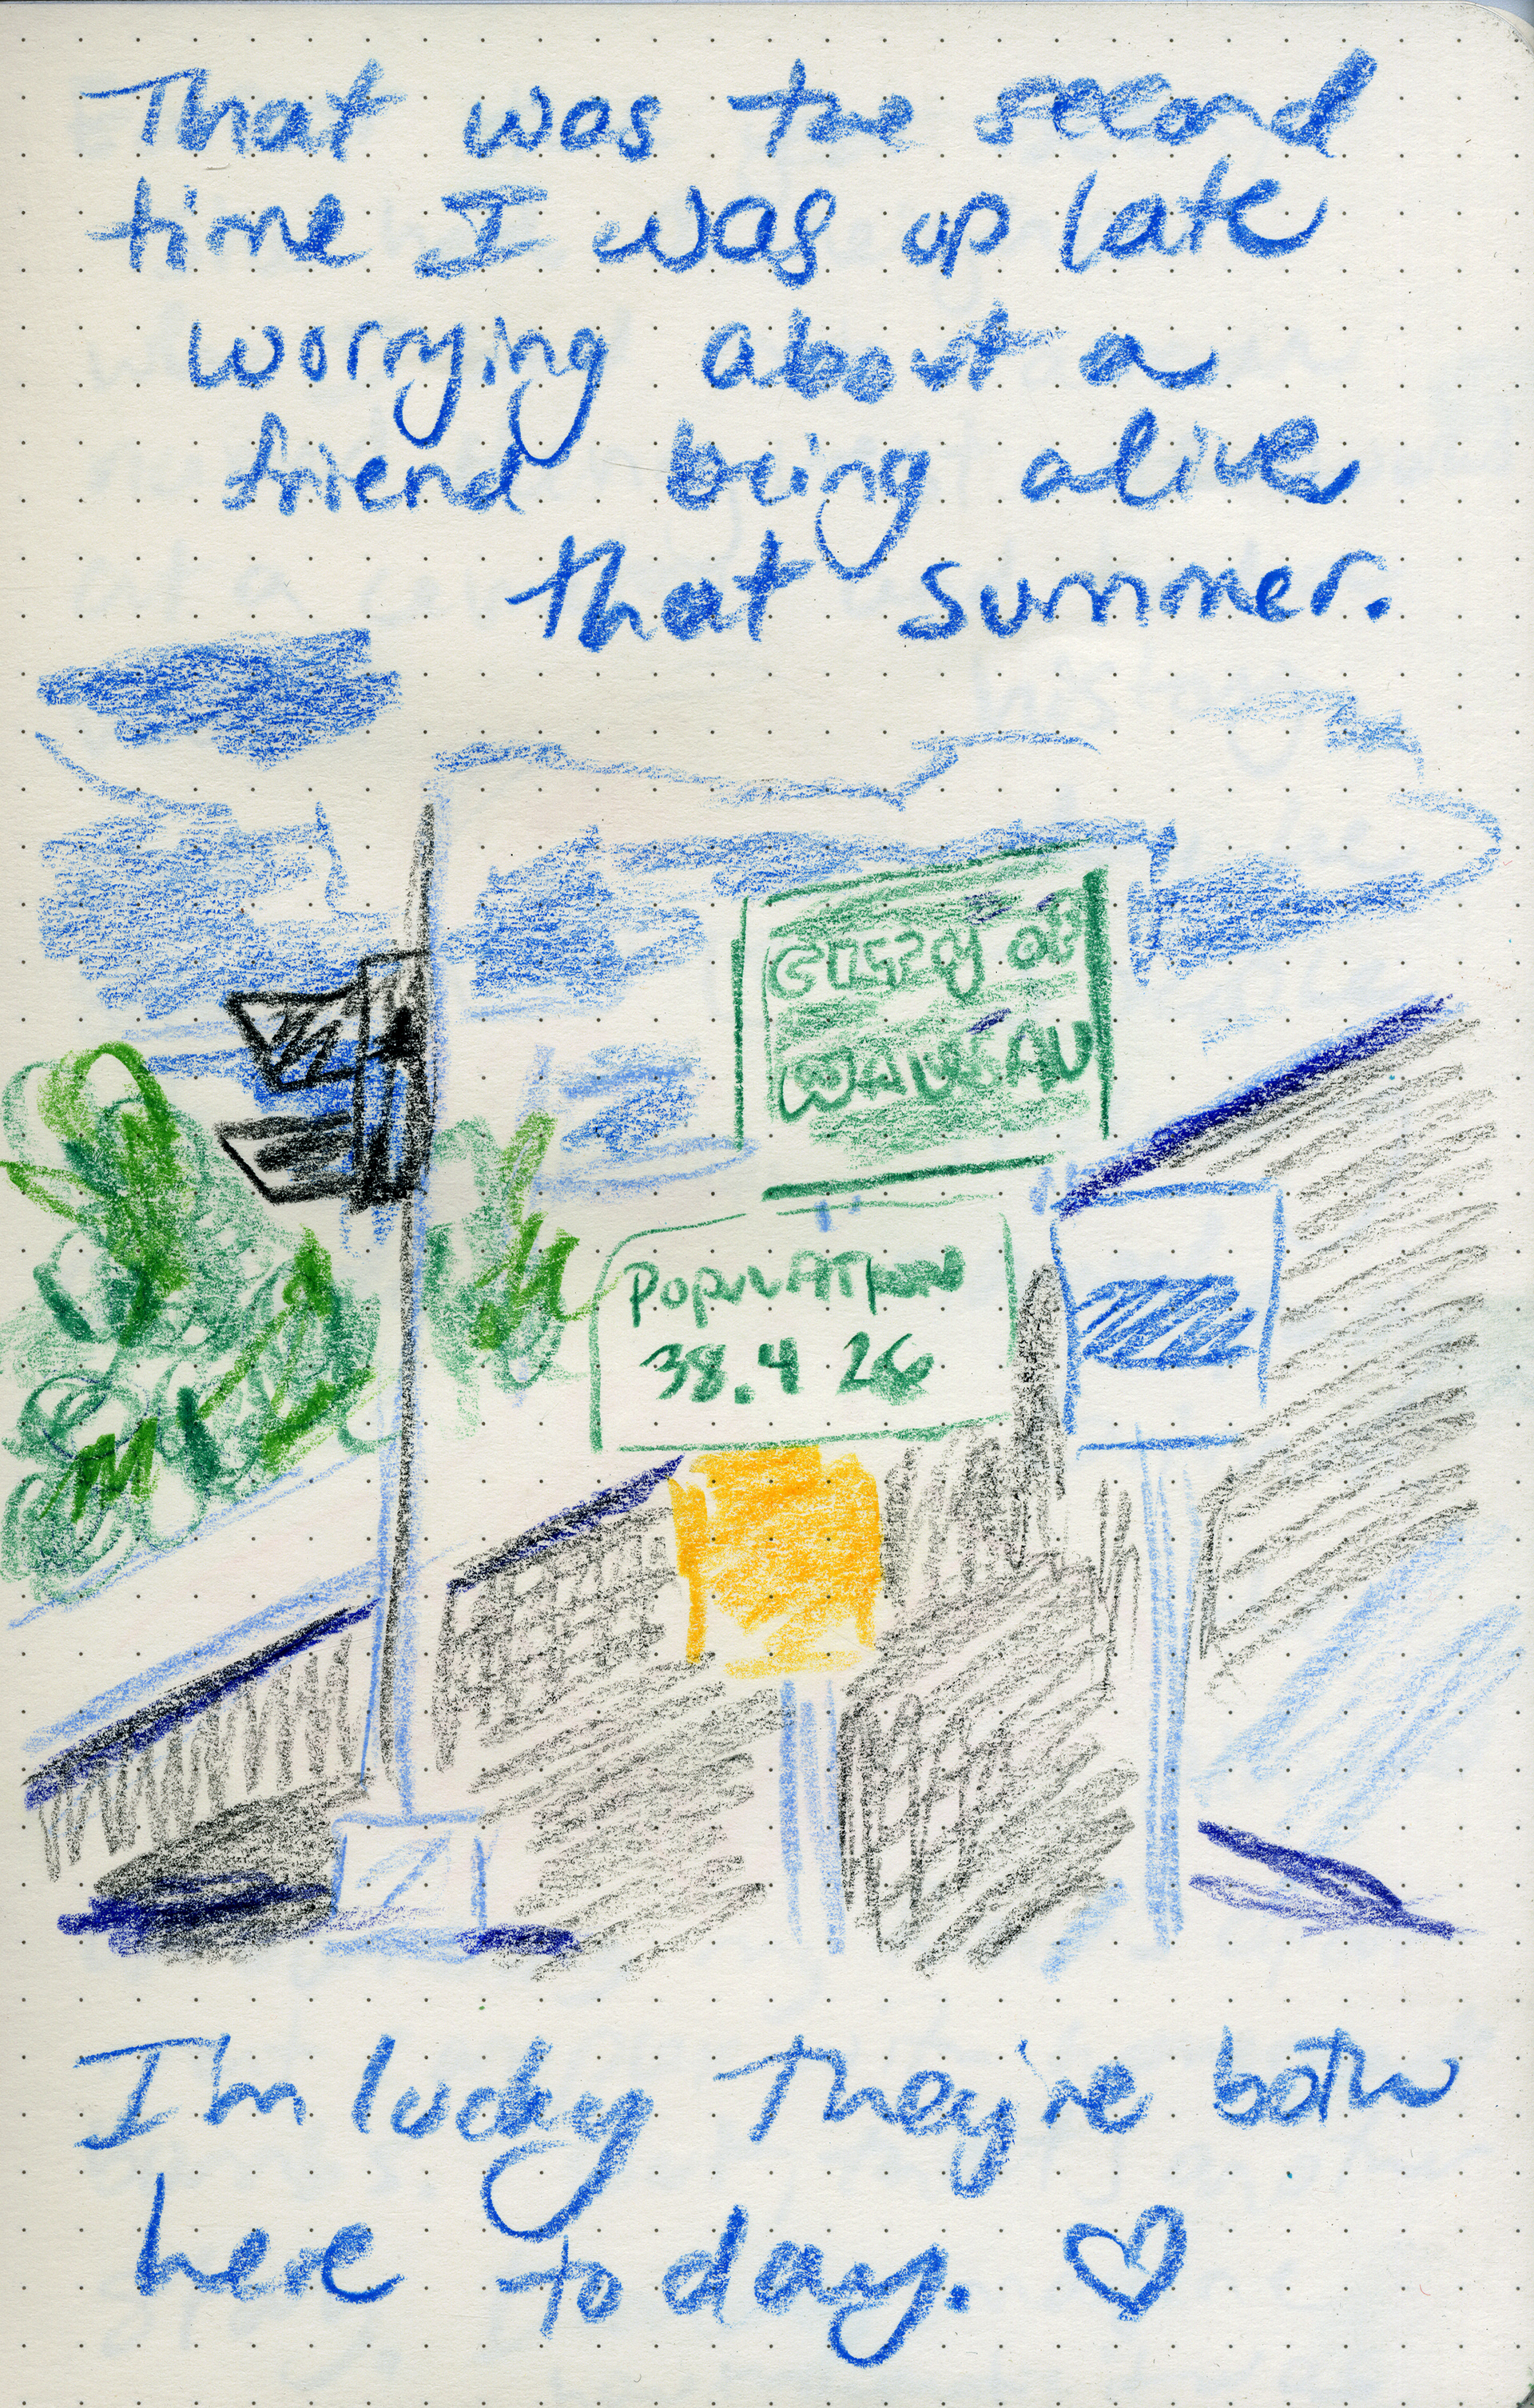 That was the second
time I was up late
worrying about a
friend being alive
that summer.
CITY OF
WAUSAU
POPULATION
38.4 26
I'm lucky they're both
here today.